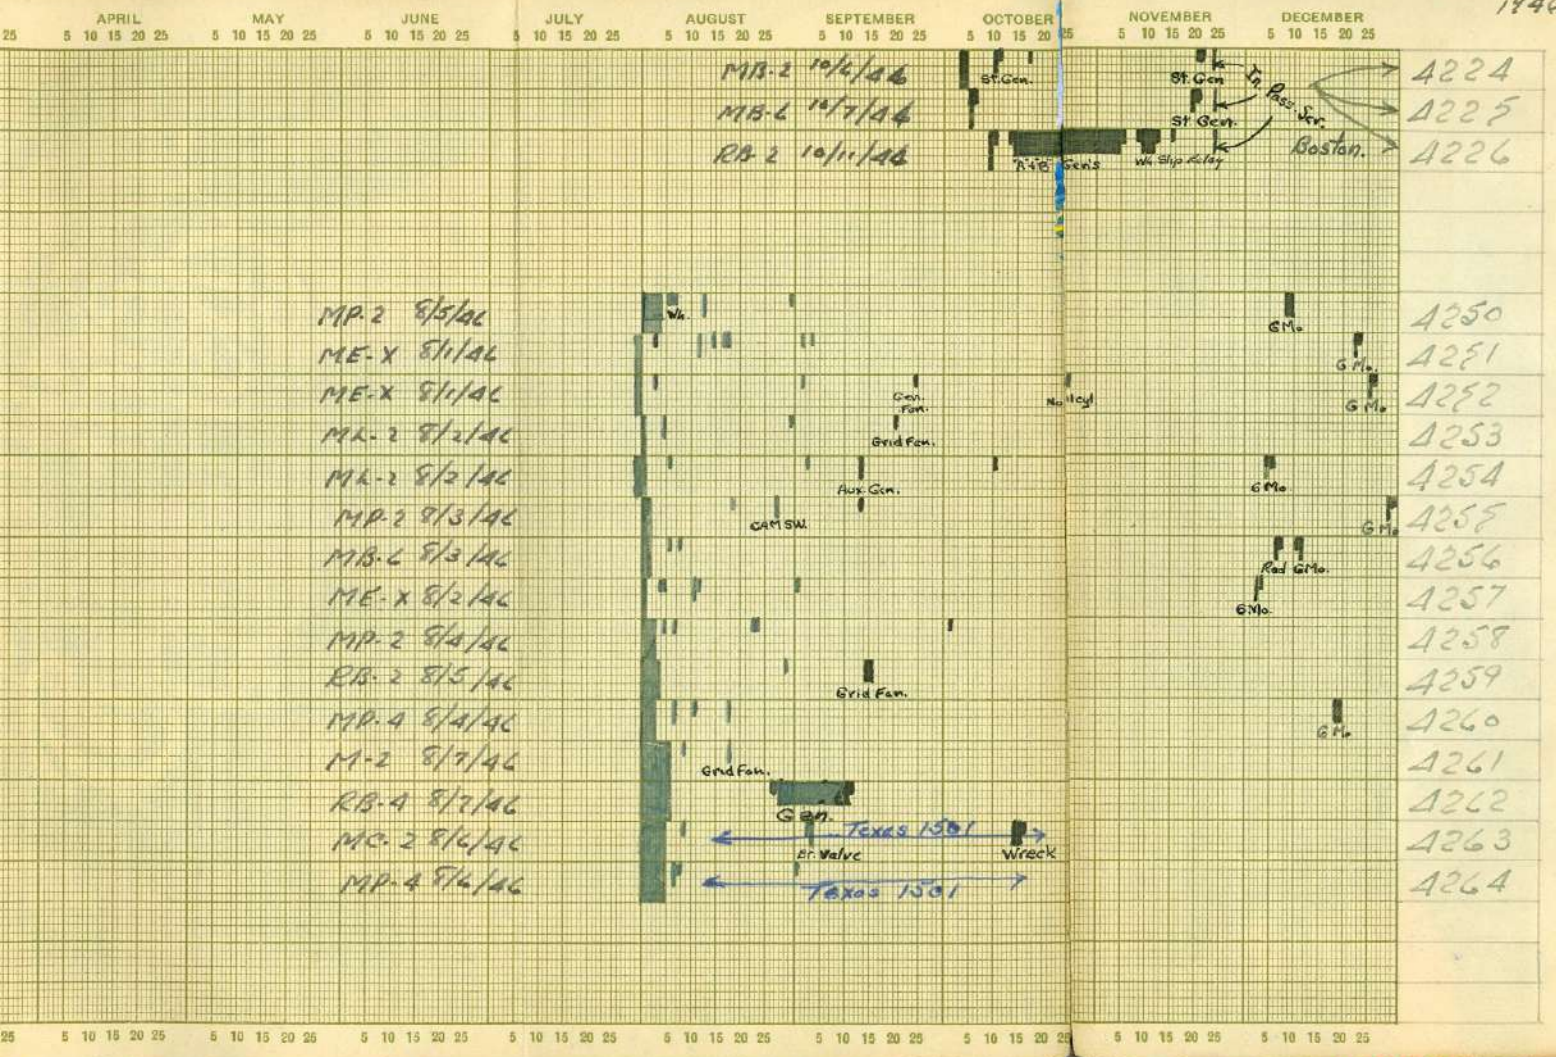 1946
APRIL MAY JUNE JULY AUGUST SEPTEMBER OCTOBER NOVEMBER DECEMBER
25 5 10 15 20 25 5 10 15 20 25 5 10 15 20 25 5 10 15 20 25 5 10 15 20 25 5 10 15 20 25 5 10 15 20 25 5 10 15 20 25 5 10 15 20 25
MB-2 10/6/46 St. Gen. St. Gen 4224
In Pass. Ser.
MB-6 10/7/46 St Gen. 4225
RB-2 10/11/46 "A+B" Gen's Wh. Slip Relay Boston. 4226
MP-2 8/5/46 Wh. G Mo 4250
ME-X 8/1/46 G Mo. 4251
ME-X 8/1/46 Gen. Fan. No 11 cyl G Mo 4252
ML-2 8/2/46 Grid Fan. 4253
ML-2 8/2/46 Aux. Gen. G Mo 4254
MP-2 8/3/46 CAM SW. G Mo 4255
MB-6 8/3/46 Rad G Mo. 4256
ME-X 8/2/46 G Mo. 4257
MP-2 8/4/46 4258
RB-2 8/5/46 Grid Fan. 4259
MP-4 8/4/46 G Mo 4260
M-2 8/7/46 Grid Fan. 4261
RB-4 8/7/46 Gen. 4262
MC-2 8/6/46 Texas 1501 Br. Valve Wreck 4263
MP-4 8/6/46 Texas 1501 4264
25 5 10 15 20 25 5 10 15 20 25 5 10 15 20 25 5 10 15 20 25 5 10 15 20 25 5 10 15 20 25 5 10 15 20 25 5 10 15 20 25 5 10 15 20 25